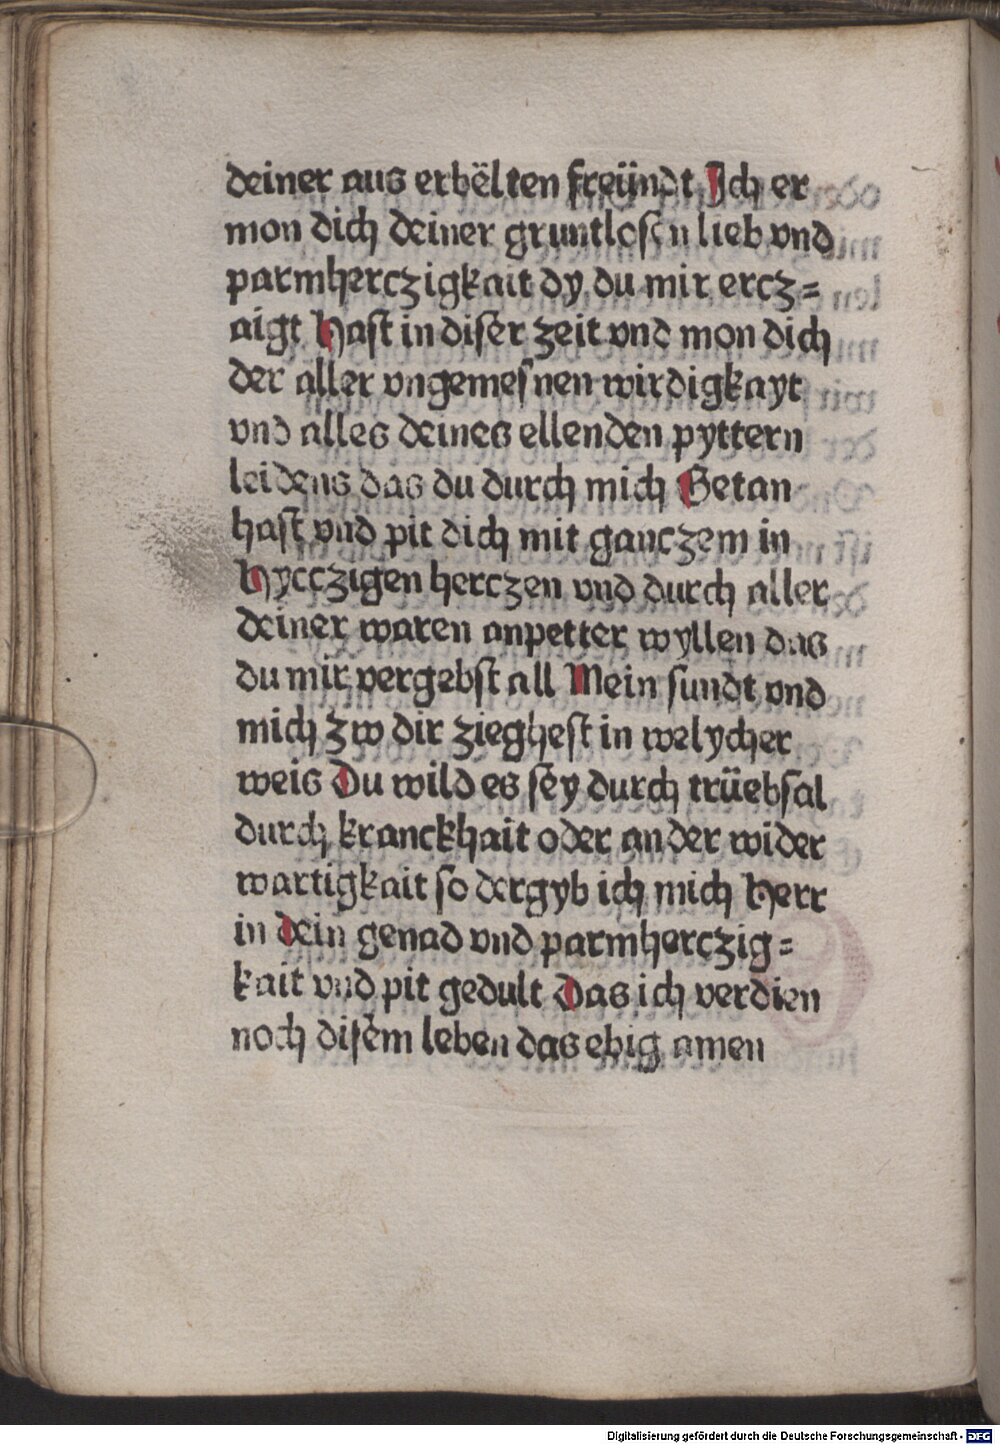 deiner aus erbëlten freündt Ich er
mon dich deiner gruntlosen lieb vnd
parmherczigkait dy du mir ercz=
aigt hast in diser zeit vnd mon dich
der aller vngemesnen wirdigkayt
vnd alles deines ellenden pyttern
leidens das du durch mich Getan
hast vnd pit dich mit ganczem in
hycczigen herczen vnd durch aller
deiner waren anpetter wyllen das
du mir vergebst all Mein sundt vnd
mich zw dir zieghest in welycher
weis Du wild es sey durch trüebsal
durch kranckhait oder an der wider
wartigkait so dergyb ich mich herr
in dein genad vnd parmherczig=
kait vnd pit gedult Das ich verdien
noch disem leben das ebig amen
Digitalisierung gefördert durch die Deutsche Forschungsgemeinschaft - DFG